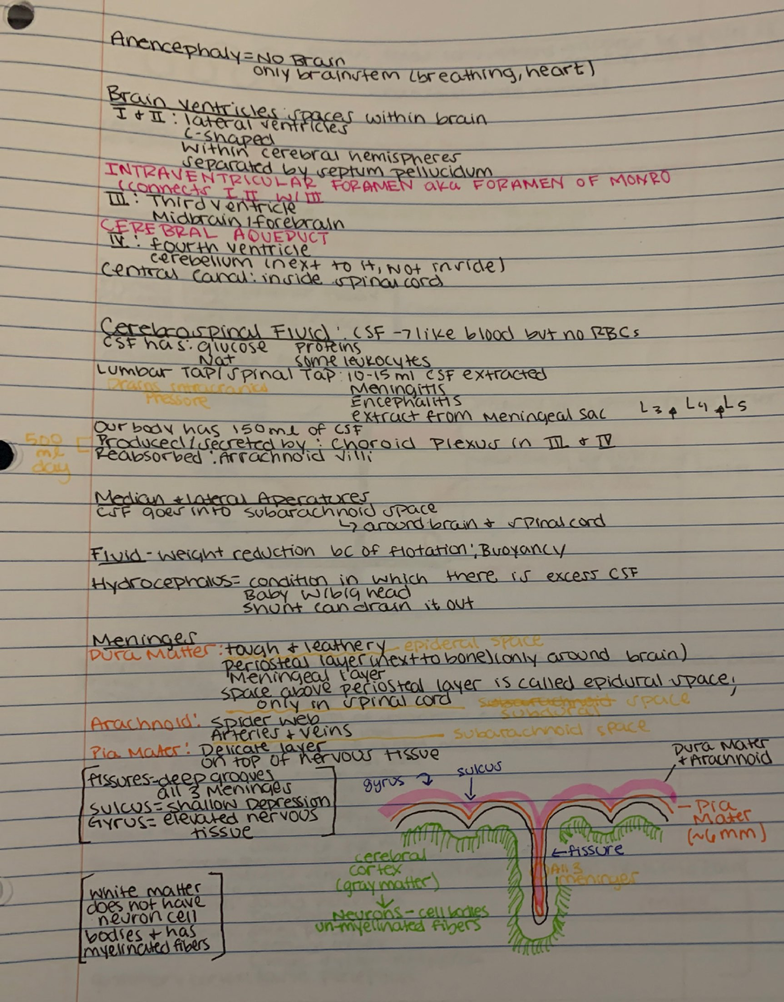 Anencephaly = No Brain
only brainstem (breathing, heart)
Brain ventricles: spaces within brain
I & II : lateral ventricles
C-shaped
within cerebral hemispheres
separated by septum pellucidum
INTRAVENTRICULAR FORAMEN aka FORAMEN OF MONRO
(connects I, II w/ III
III : Third ventricle
Midbrain/forebrain
CEREBRAL AQUEDUCT
IV : fourth ventricle
cerebellum (next to it, Not inside)
central canal: inside spinal cord
Cerebrospinal Fluid: CSF → like blood but no RBCs
CSF has: glucose proteins
Na+ some leukocytes
Lumbar Tap/Spinal Tap: 10-15 ml CSF extracted
Drains intracranial Meningitis
Pressure Encephalitis
extract from Meningeal sac L3, L4, L5
Our body has 150 ml of CSF
500 ml day
Produced/secreted by : Choroid Plexus in III & IV
Reabsorbed : Arrachnoid villi
Median & lateral Aperatures
CSF goes into subarachnoid space
↳ around brain & spinal cord
Fluid - weight reduction bc of flotation; Buoyancy
Hydrocephalus = condition in which there is excess CSF
Baby w/ big head
Shunt can drain it out
Meninges
Dura Matter : tough & leathery - epideral space
periosteal layer (next to bone) (only around brain)
Meningeal layer
space above periosteal layer is called epidural space;
only in spinal cord subarachnoid space
subdural
Arachnoid: spider web
Arteries & veins - subarachnoid space
Pia Mater: Delicate layer
on top of nervous tissue
fissures = deep grooves
all 3 Meninges
sulcus = shallow Depression
Gyrus = elevated nervous
tissue
gyrus
sulcus
Dura Mater
& Arachnoid
Pia
Mater
(~6mm)
← fissure
All 3
meninges
cerebral
cortex
(gray matter)
↓
Neurons - cell bodies
un-myelinated fibers
white matter
does not have
neuron cell
bodies & has
myelinated fibers